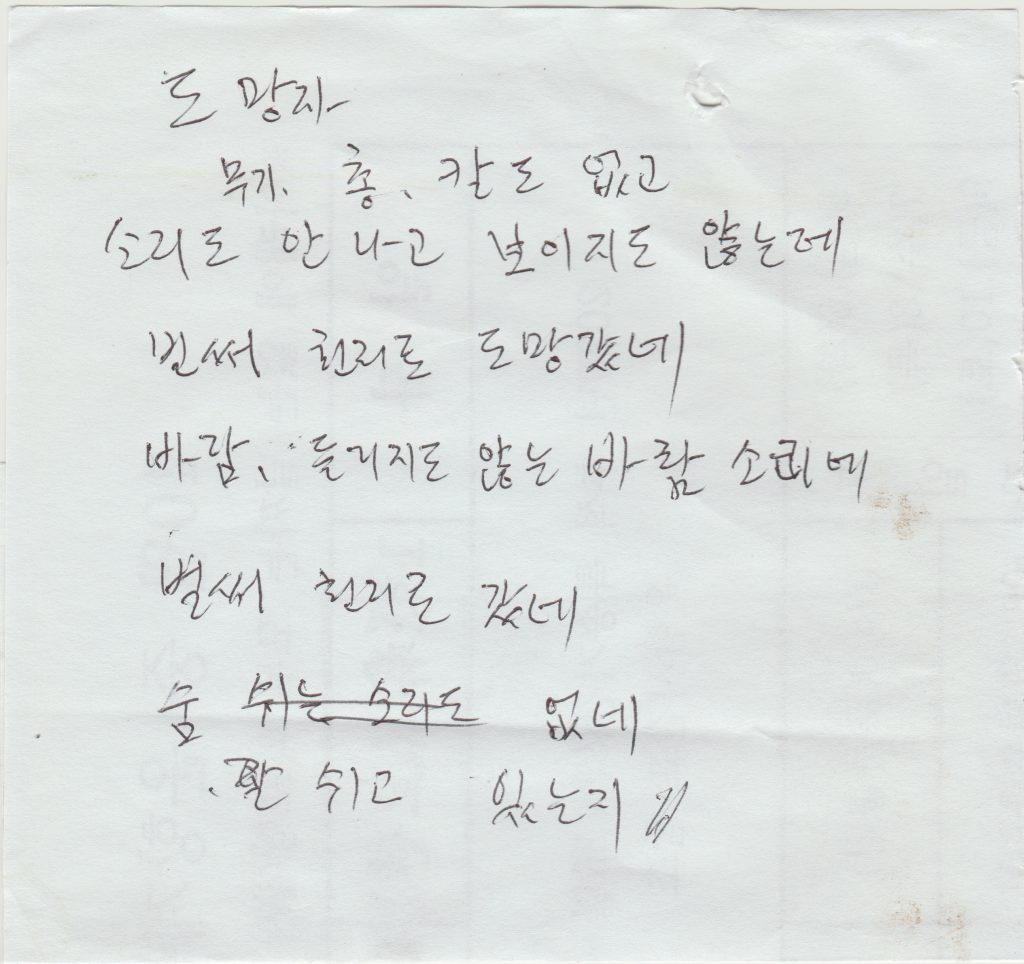 도망자
무기、총、칼도 없고
소리도 안 나고 보이지도 않는데
벌써 천리로 도망갔네
바람、들리지도 않는 바람 소리네
벌써 천리로 갔네
숨 쉬는 소리도 없네
쉬고 있는지